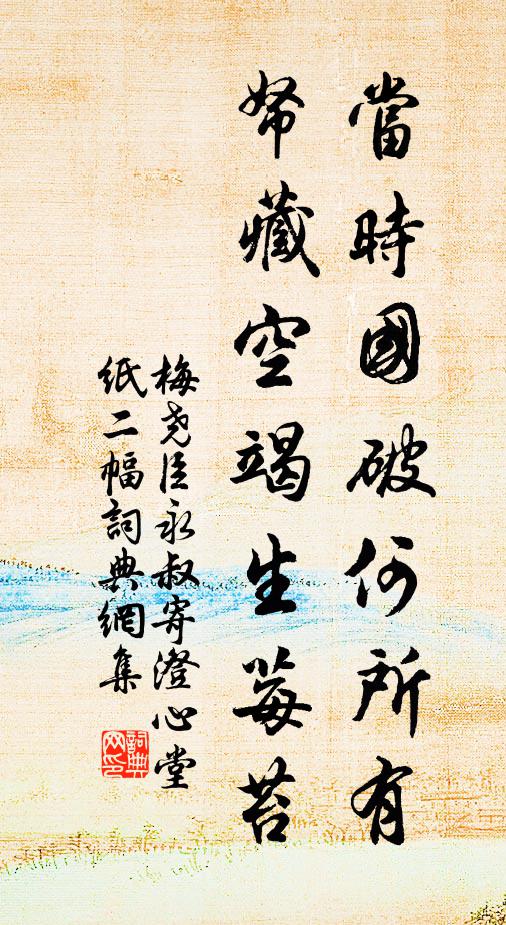 當時國破何所有
帑藏空竭生莓苔
梅堯臣永叔寄澄心堂
紙二幅詞典網集
詞典網印